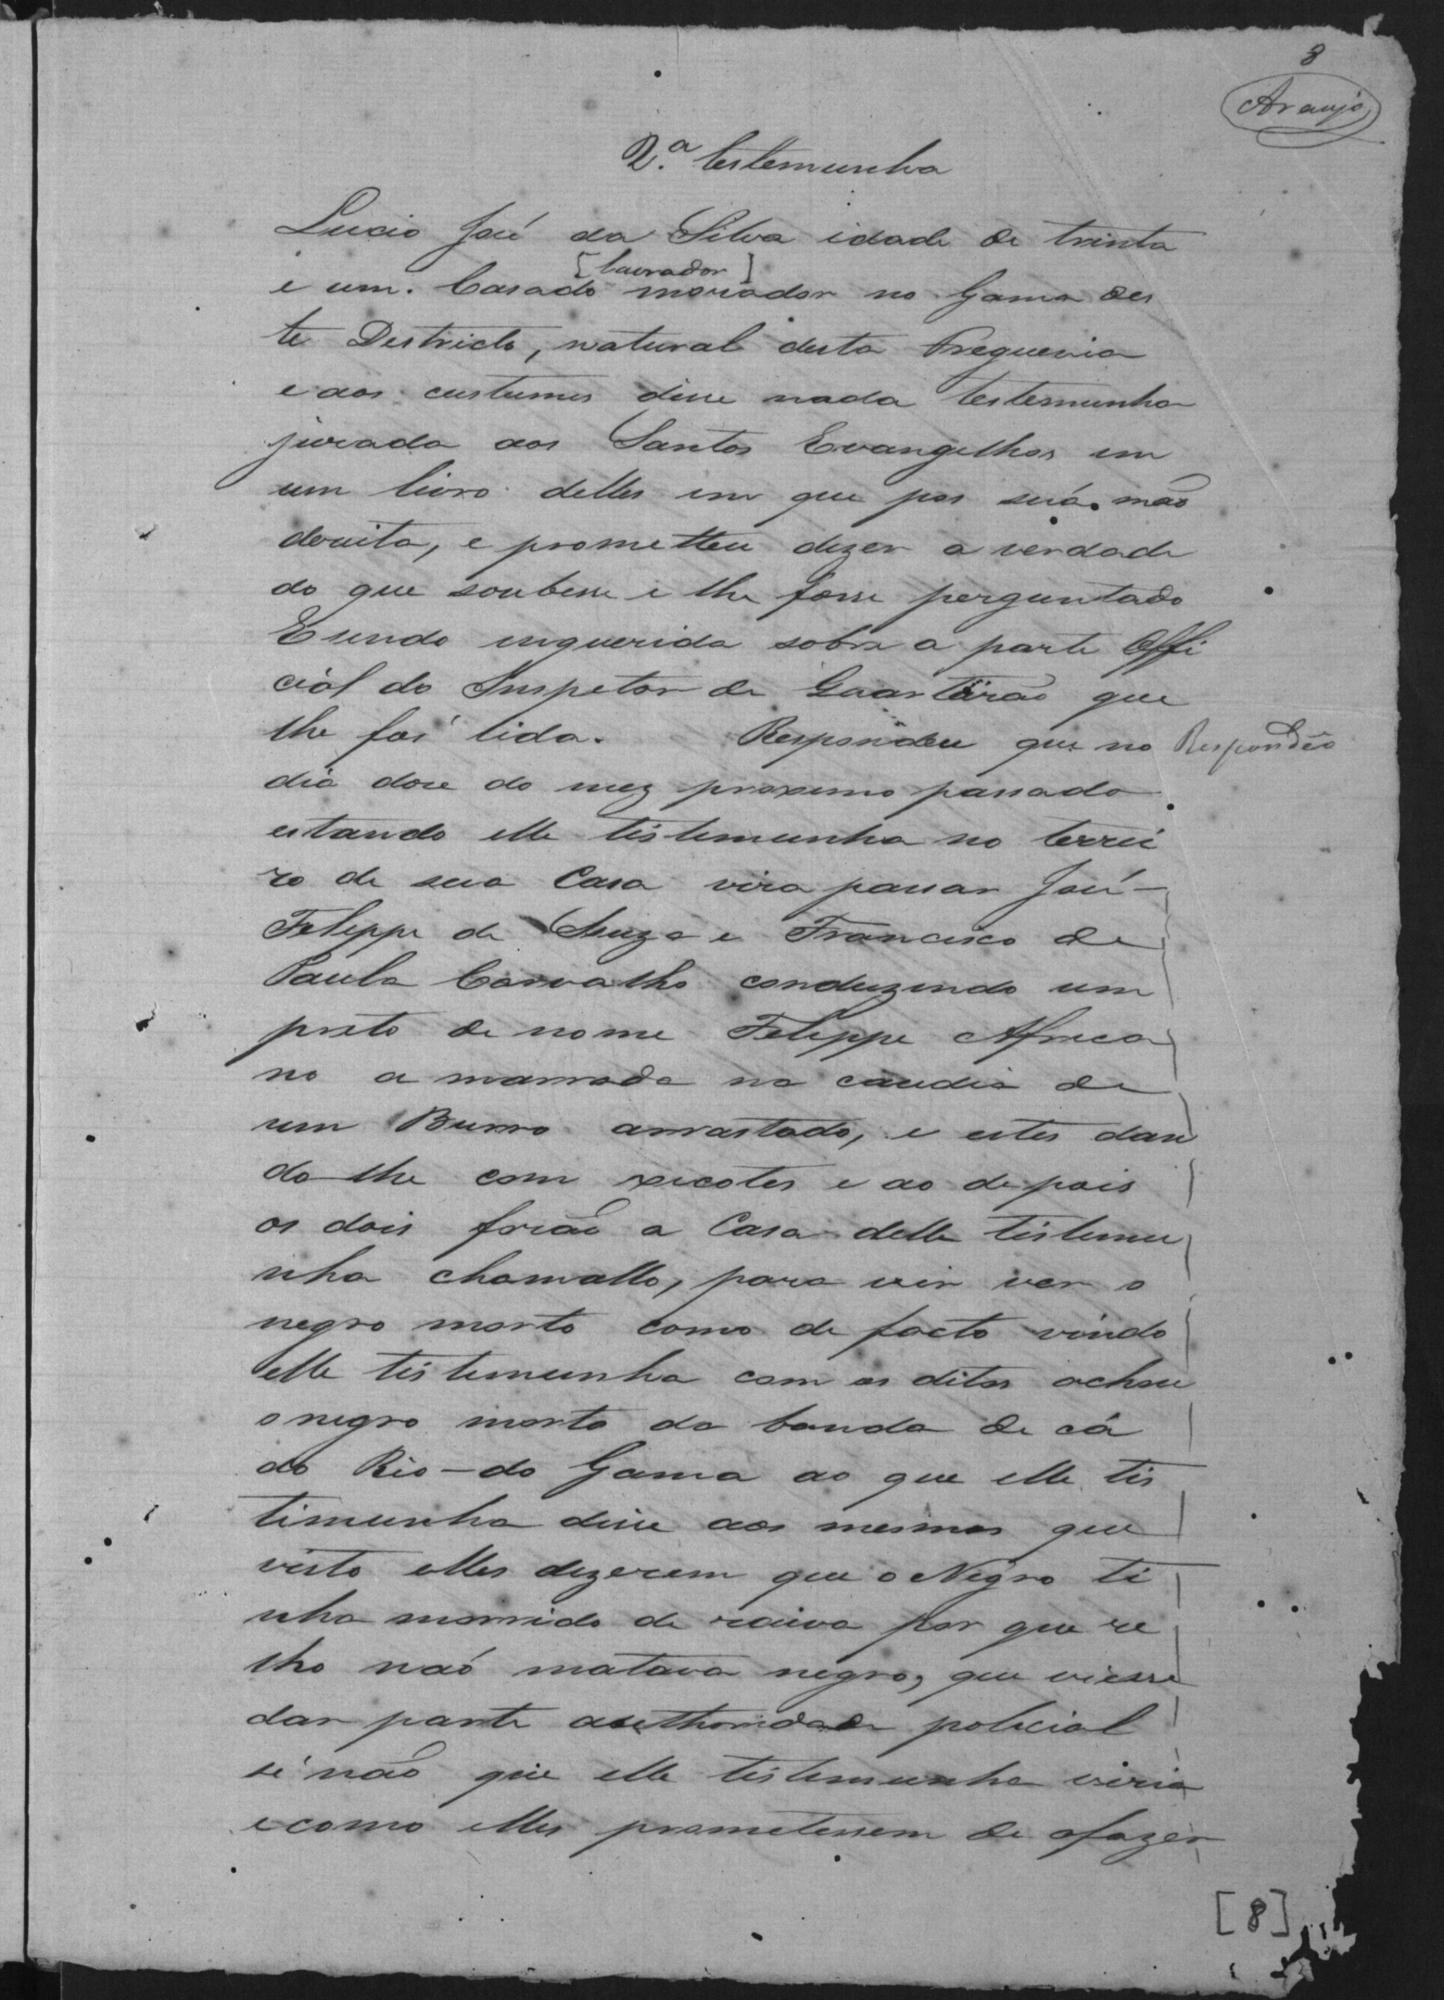 8
Araujo
2.ª testemunha
Lucio José da Silva idade de trinta
[lavrador]
e um. Casado morador no Gama des
te Destricto, natural desta Freguezia
e aos custumes disse nada testemunha
jurada aos Santos Evangelhos em
um livro delles em que pos sua mão
dereita, e prometteu dizer a verdade
do que soubesse e lhe fosse perguntado
E sendo inquerida sobre a parte Offi
cial do Inspetor de Quarteirão que
lhe foi lida. Respondeu que no
Respondêo
dia doze do mez proximo passado
estando elle testemunha no terrei
ro de sua Casa vira passar José
Felippe de Souza e Francisco de
Paula Carvalho conduzindo um
preto de nome Felippe Africa
no a marrado na caudia de
um Burro arrastado, e estes dan
do lhe com xicotes e ao depois
os dois forão a Casa delle testemu
nha chamallo, para vir ver o
negro morto como de facto vindo
elle testemunha com os ditos achou
o negro morto da banda de cá
do Rio-do Gama ao que elle tes
timunha disse aos mesmos que
visto elles dizerem que o Negro ti
nha morrido de raiva por que re
lho não matava negro, que viesse
dar parte authoridade policial
se não que elle testemunha viria
e como elles prometessem de o fazer
[8]